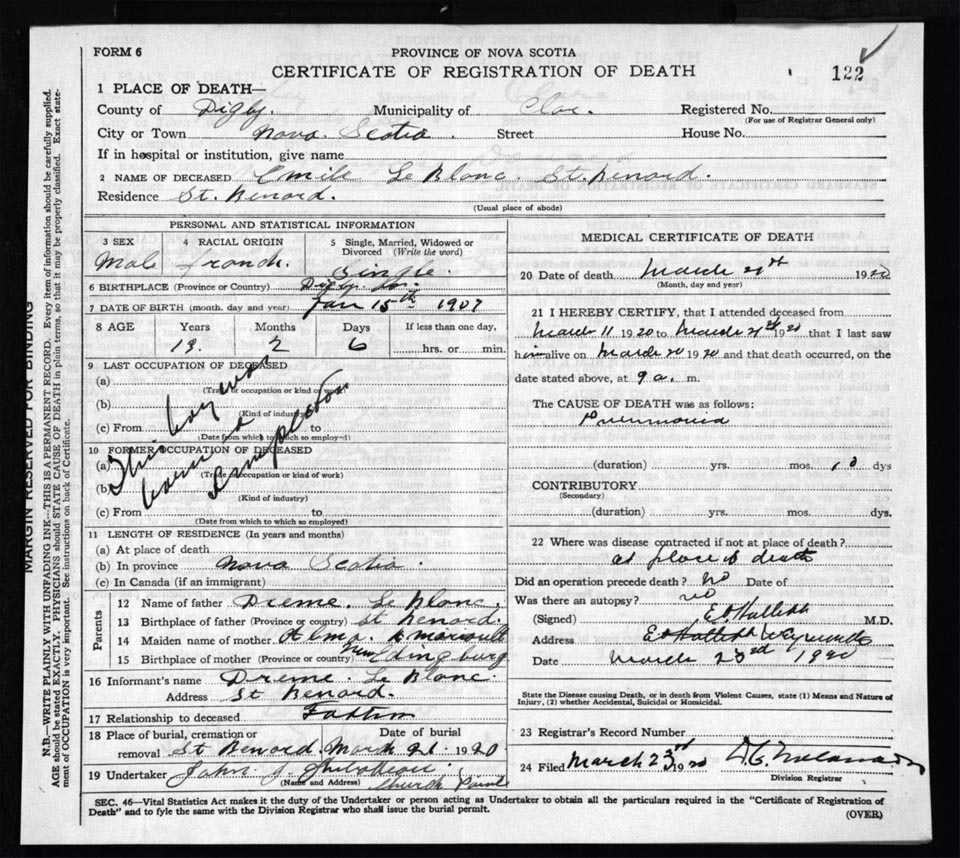 FORM 6
PROVINCE OF NOVA SCOTIA
CERTIFICATE OF REGISTRATION OF DEATH
122
1 PLACE OF DEATH—
County of Digby. Municipality of Clare. Registered No.
(For use of Registrar General only)
City or Town Nova Scotia. Street House No.
If in hospital or institution, give name
2 NAME OF DECEASED Emile Le Blanc. St. Benard.
Residence St. Benard.
(Usual place of abode)
PERSONAL AND STATISTICAL INFORMATION
3 SEX 4 RACIAL ORIGIN 5 Single, Married, Widowed or Divorced (Write the word)
Male French. Single.
6 BIRTHPLACE (Province or Country) Digby
7 DATE OF BIRTH (month, day and year) Jan 15th 1907
8 AGE Years Months Days If less than one day,
13. 2 6 hrs. or min.
9 LAST OCCUPATION OF DECEASED
(a)
(Trade occupation or kind of work)
(b)
(Kind of industry)
(c) From to
(Date from which to which so employed)
This boy was born a simpleton
10 FORMER OCCUPATION OF DECEASED
(a)
(Trade occupation or kind of work)
(b)
(Kind of industry)
(c) From to
(Date from which to which so employed)
11 LENGTH OF RESIDENCE (In years and months)
(a) At place of death
(b) In province Nova Scotia.
(c) In Canada (if an immigrant)
Parents
12 Name of father Dreme. Le Blanc.
13 Birthplace of father (Province or country) St Benard.
14 Maiden name of mother Alma
15 Birthplace of mother (Province or country) New Edingburg
16 Informant's name Dreme. Le Blanc.
Address St Benard.
17 Relationship to deceased Father
18 Place of burial, cremation or removal Date of burial
St Benard. March 21 1920
19 Undertaker John J.
(Name and Address) Church Point
MEDICAL CERTIFICATE OF DEATH
20 Date of death March 21st 1920
(Month, day and year)
21 I HEREBY CERTIFY, that I attended deceased from
March 11 1920 to March 21st 1920 that I last saw
him alive on March 20 1920 and that death occurred, on the
date stated above, at 9 a. m.
The CAUSE OF DEATH was as follows:
Pneumonia
(duration) yrs. mos. 10 dys
CONTRIBUTORY
(Secondary)
(duration) yrs. mos. dys.
22 Where was disease contracted if not at place of death?
at place of death
Did an operation precede death? no Date of
Was there an autopsy? no
(Signed) M.D.
Address Weymouth
Date March 23rd 1920
State the Disease causing Death, or in death from Violent Causes, state (1) Means and Nature of
Injury, (2) whether Accidental, Suicidal or Homicidal.
23 Registrar's Record Number
24 Filed March 23rd 1920
Division Registrar
SEC. 46—Vital Statistics Act makes it the duty of the Undertaker or person acting as Undertaker to obtain all the particulars required in the "Certificate of Registration of
Death" and to fyle the same with the Division Registrar who shall issue the burial permit.
(OVER)
MARGIN RESERVED FOR BINDING
N.B.—WRITE PLAINLY WITH UNFADING INK—THIS IS A PERMANENT RECORD. Every item of information should be carefully supplied.
AGE should be stated EXACTLY. PHYSICIANS should STATE CAUSE OF DEATH in plain terms, so that it may be properly classified. Exact state-
ment of OCCUPATION is very important. See instructions on back of Certificate.